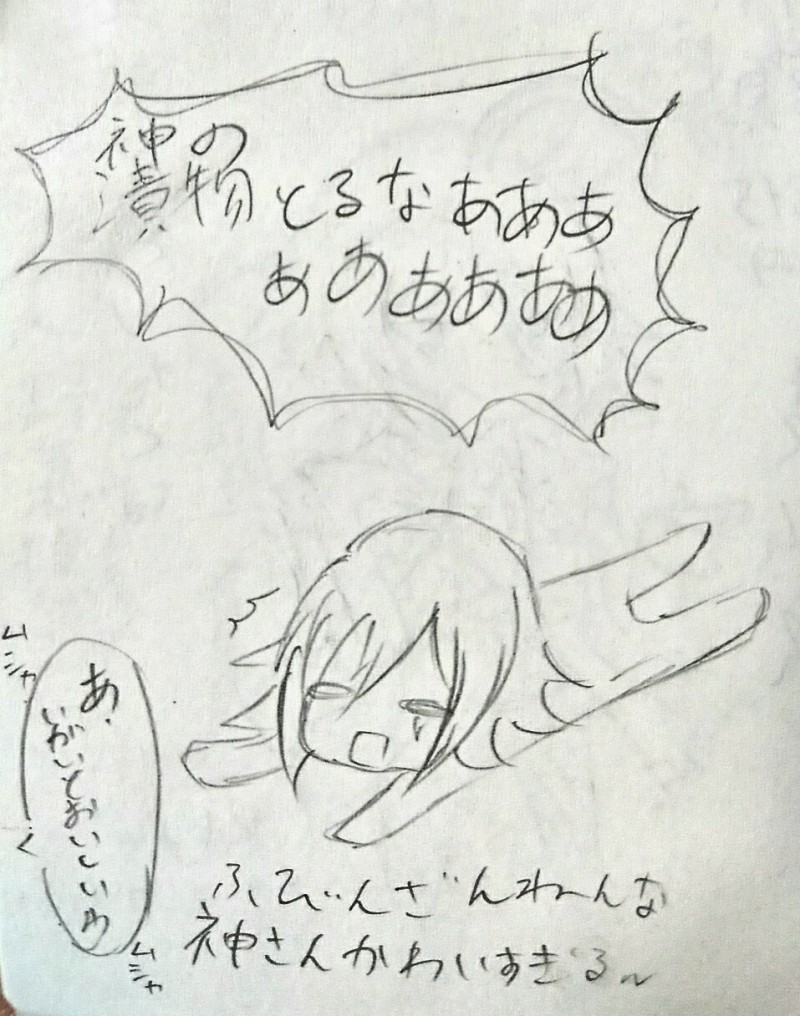 神の
漬物とるなあああ
ああああああ
ムシャ
あ、
いがいとおいしいわ
ムシャ
ふびんざんねんな
神さんかわいすぎる～